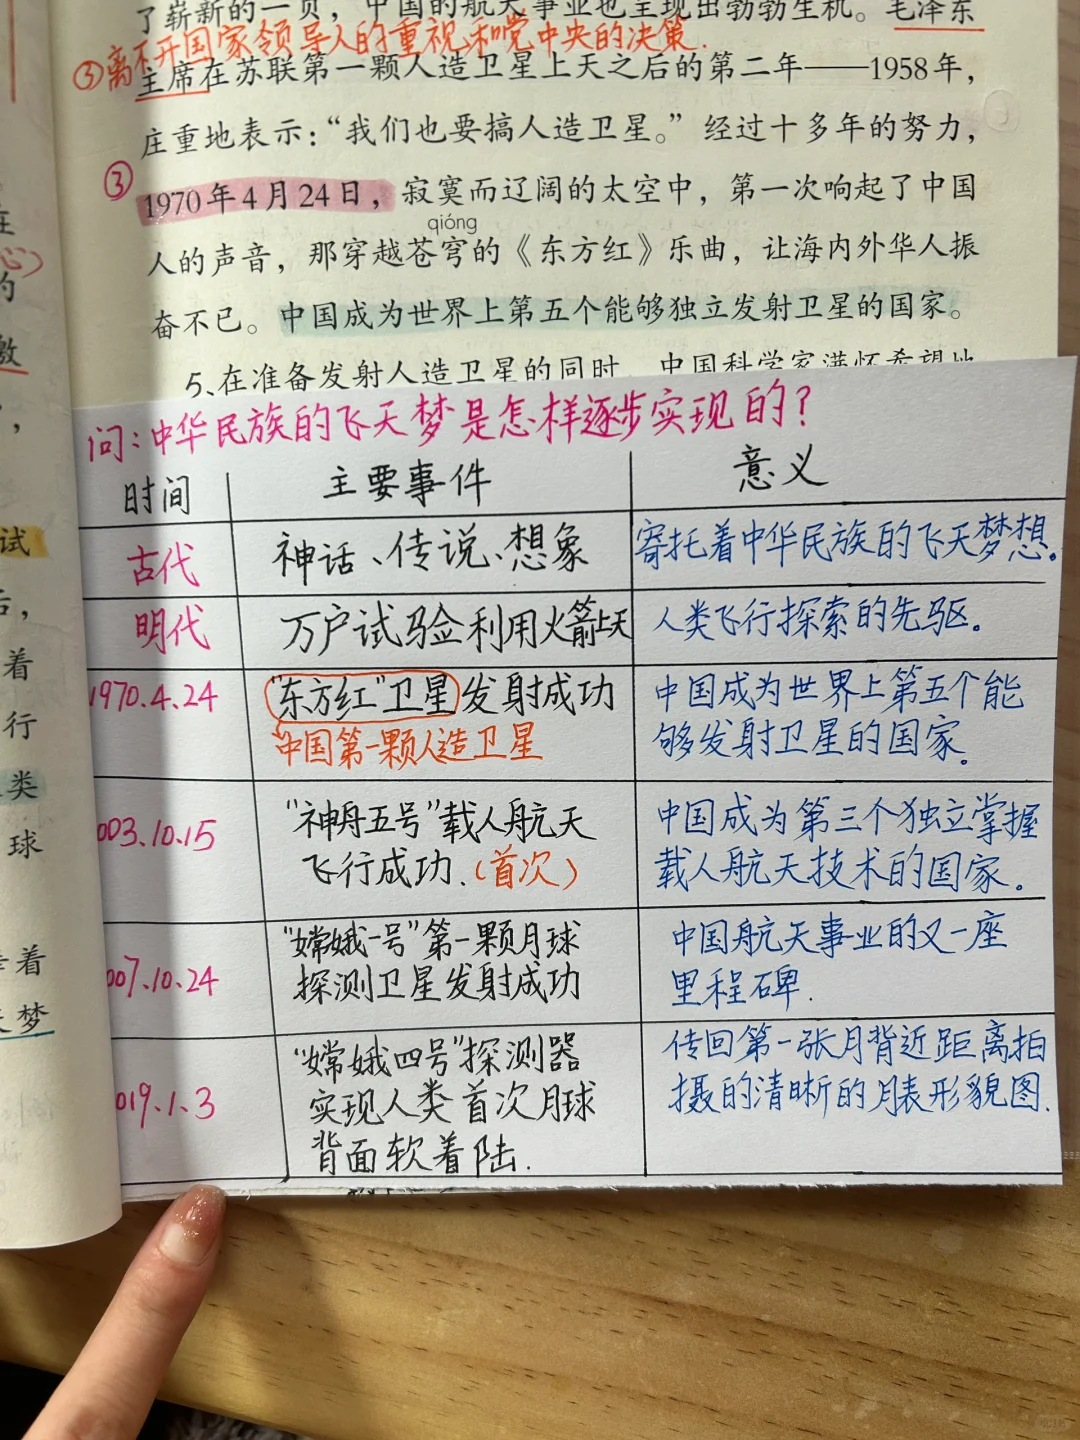 了崭新的一页，中国的航天事业也呈现出勃勃生机。毛泽东
③离不开国家领导人的重视和党中央的决策.
主席在苏联第一颗人造卫星上天之后的第二年——1958年，
庄重地表示：“我们也要搞人造卫星。”经过十多年的努力，
③
1970年4月24日，寂寞而辽阔的太空中，第一次响起了中国
qióng
人的声音，那穿越苍穹的《东方红》乐曲，让海内外华人振
奋不已。中国成为世界上第五个能够独立发射卫星的国家。
5、在准备发射人造卫星的同时，中国科学家满怀希望地
问：中华民族的飞天梦是怎样逐步实现的？
时间 主要事件 意义
古代 神话、传说、想象 寄托着中华民族的飞天梦想。
明代 万户试验利用火箭上天 人类飞行探索的先驱。
1970.4.24 “东方红”卫星发射成功 中国成为世界上第五个能
中国第一颗人造卫星 够发射卫星的国家.
003.10.15 “神舟五号”载人航天 中国成为第三个独立掌握
飞行成功.（首次） 载人航天技术的国家.
007.10.24 “嫦娥一号”第一颗月球 中国航天事业的又一座
探测卫星发射成功 里程碑.
019.1.3 “嫦娥四号”探测器 传回第一张月背近距离拍
实现人类首次月球 摄的清晰的月表形貌图.
背面软着陆.
试
后，
着
行
类
球
着
梦